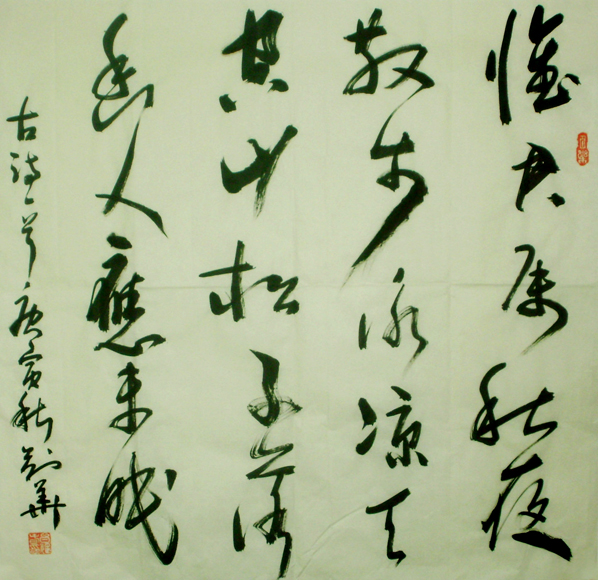 懷君属秋夜
散步咏凉天
空山松子落
幽人應未眠
古诗一首庚寅秋刘華